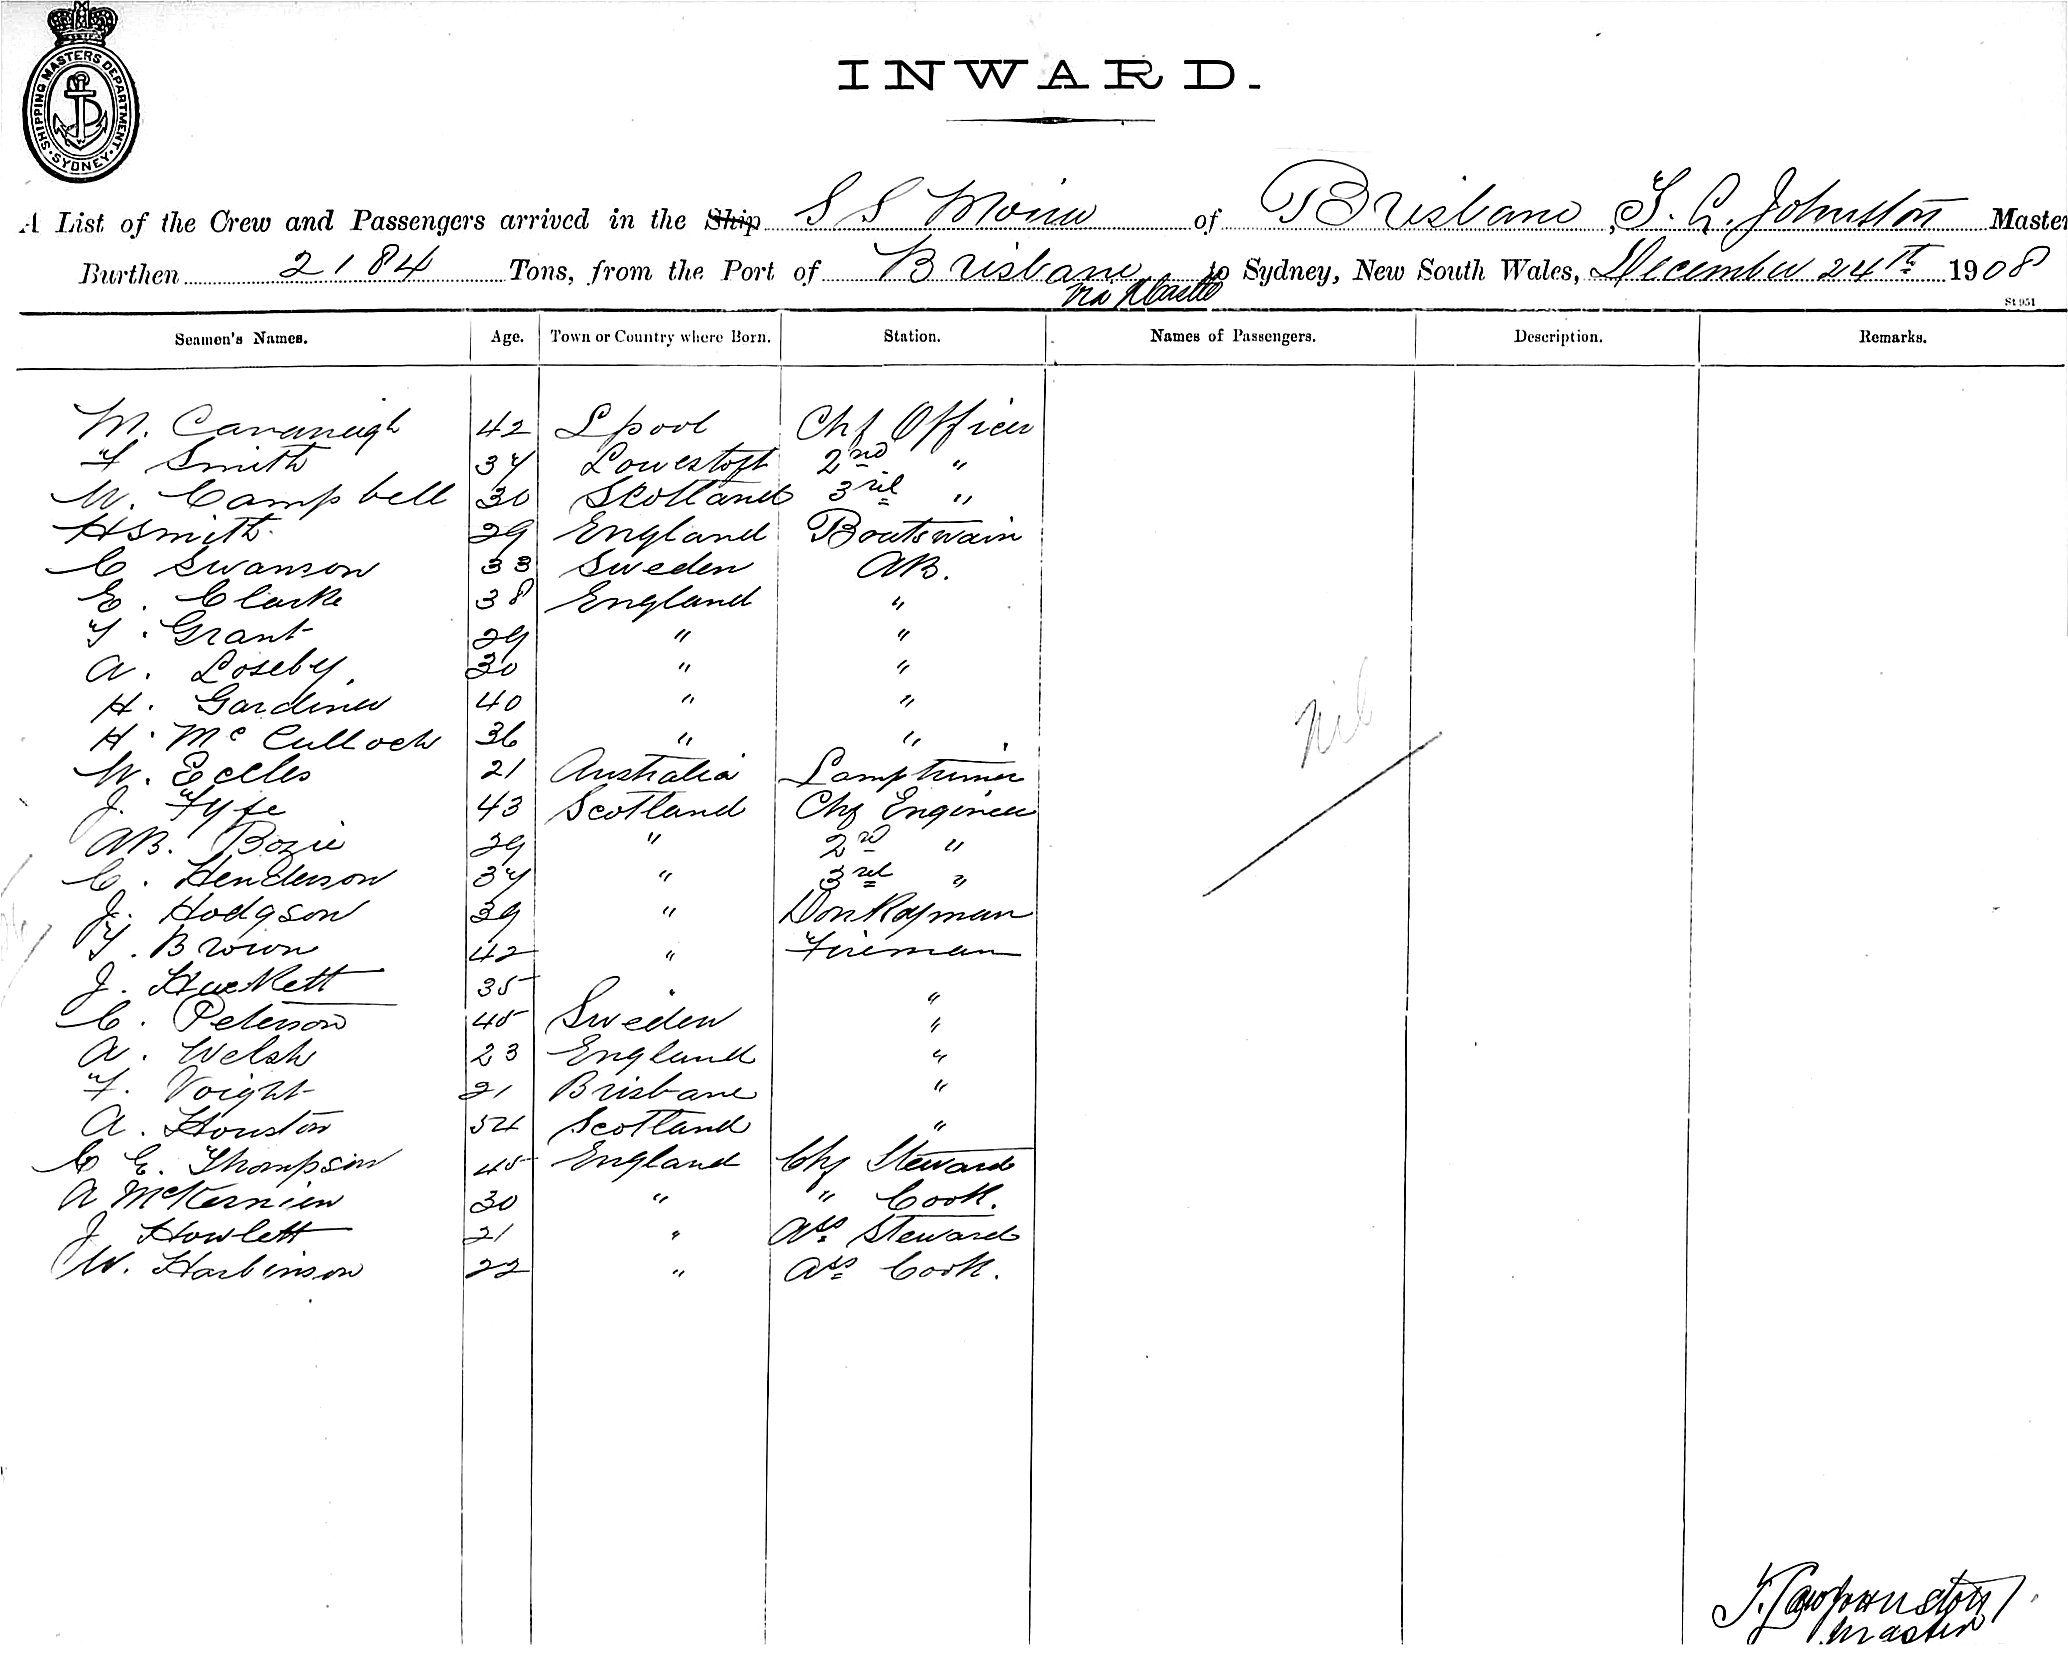 SHIPPING MASTERS DEPARTMENT
· SYDNEY ·
INWARD.
A List of the Crew and Passengers arrived in the Ship S S Moira of Brisbane, T. L. Johnston Master
Burthen 2184 Tons, from the Port of Brisbane to Sydney, New South Wales, December 24th 1908
via NCastle
St 951
Seamen's Names. Age. Town or Country where Born. Station. Names of Passengers. Description. Remarks.
M. Cavanaugh 42 Lpool Chf Officer
F Smith 37 Lowestoft 2nd "
W. Campbell 30 Scotland 3rd "
H Smith 29 England Boatswain
C Swanson 33 Sweden AB.
E. Clarke 38 England "
T. Grant 29 " "
A. Loseby 30 " "
H. Gardiner 40 " "
H. McCulloch 36 " "
W. Eccles 21 Australia Lamptrimer
J. Fyfe 43 Scotland Chf Engineer
AB. Bozie 29 " 2nd "
C. Henderson 37 " 3rd "
J. Hodgson 39 " Donkeyman
T. Brown 42 " Fireman
J. Huckett 35 " "
C. Peterson 45 Sweden "
A. Welsh 23 England "
F. Voight 21 Brisbane "
A. Houston 54 Scotland "
C E. Thompson 45 England Chf Steward
A McKernien 30 " " Cook.
J Howlett 21 " Ass Steward
W. Harbinson 22 " Ass Cook.
Nil
Master